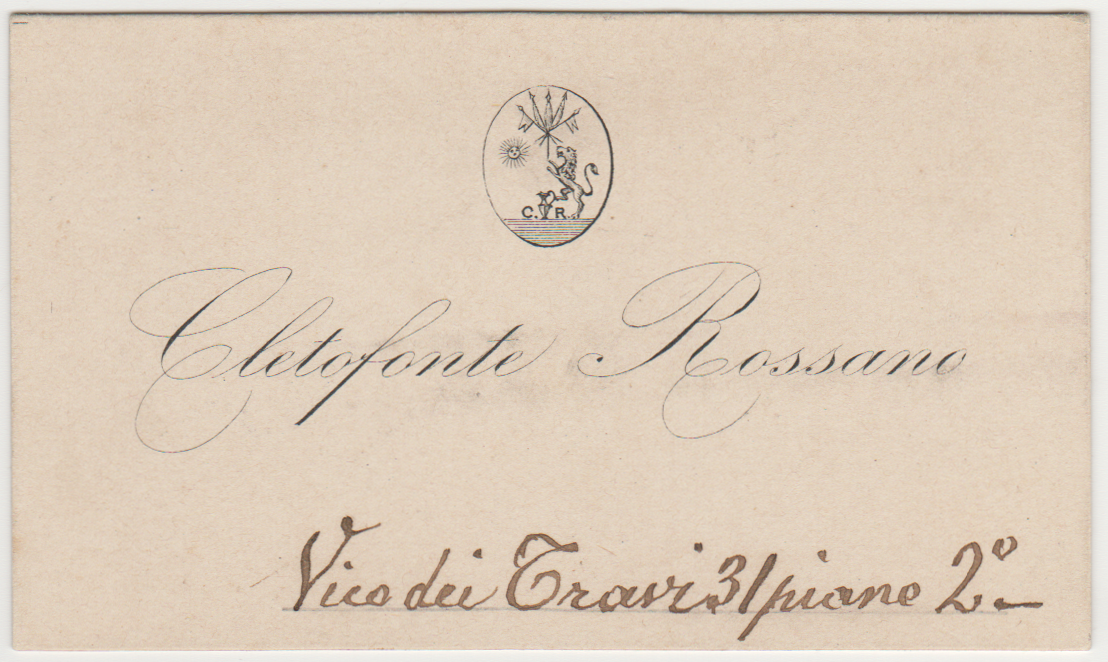 C. R.
Cletofonte Rossano
Vico dei Travi 31 piano 2º